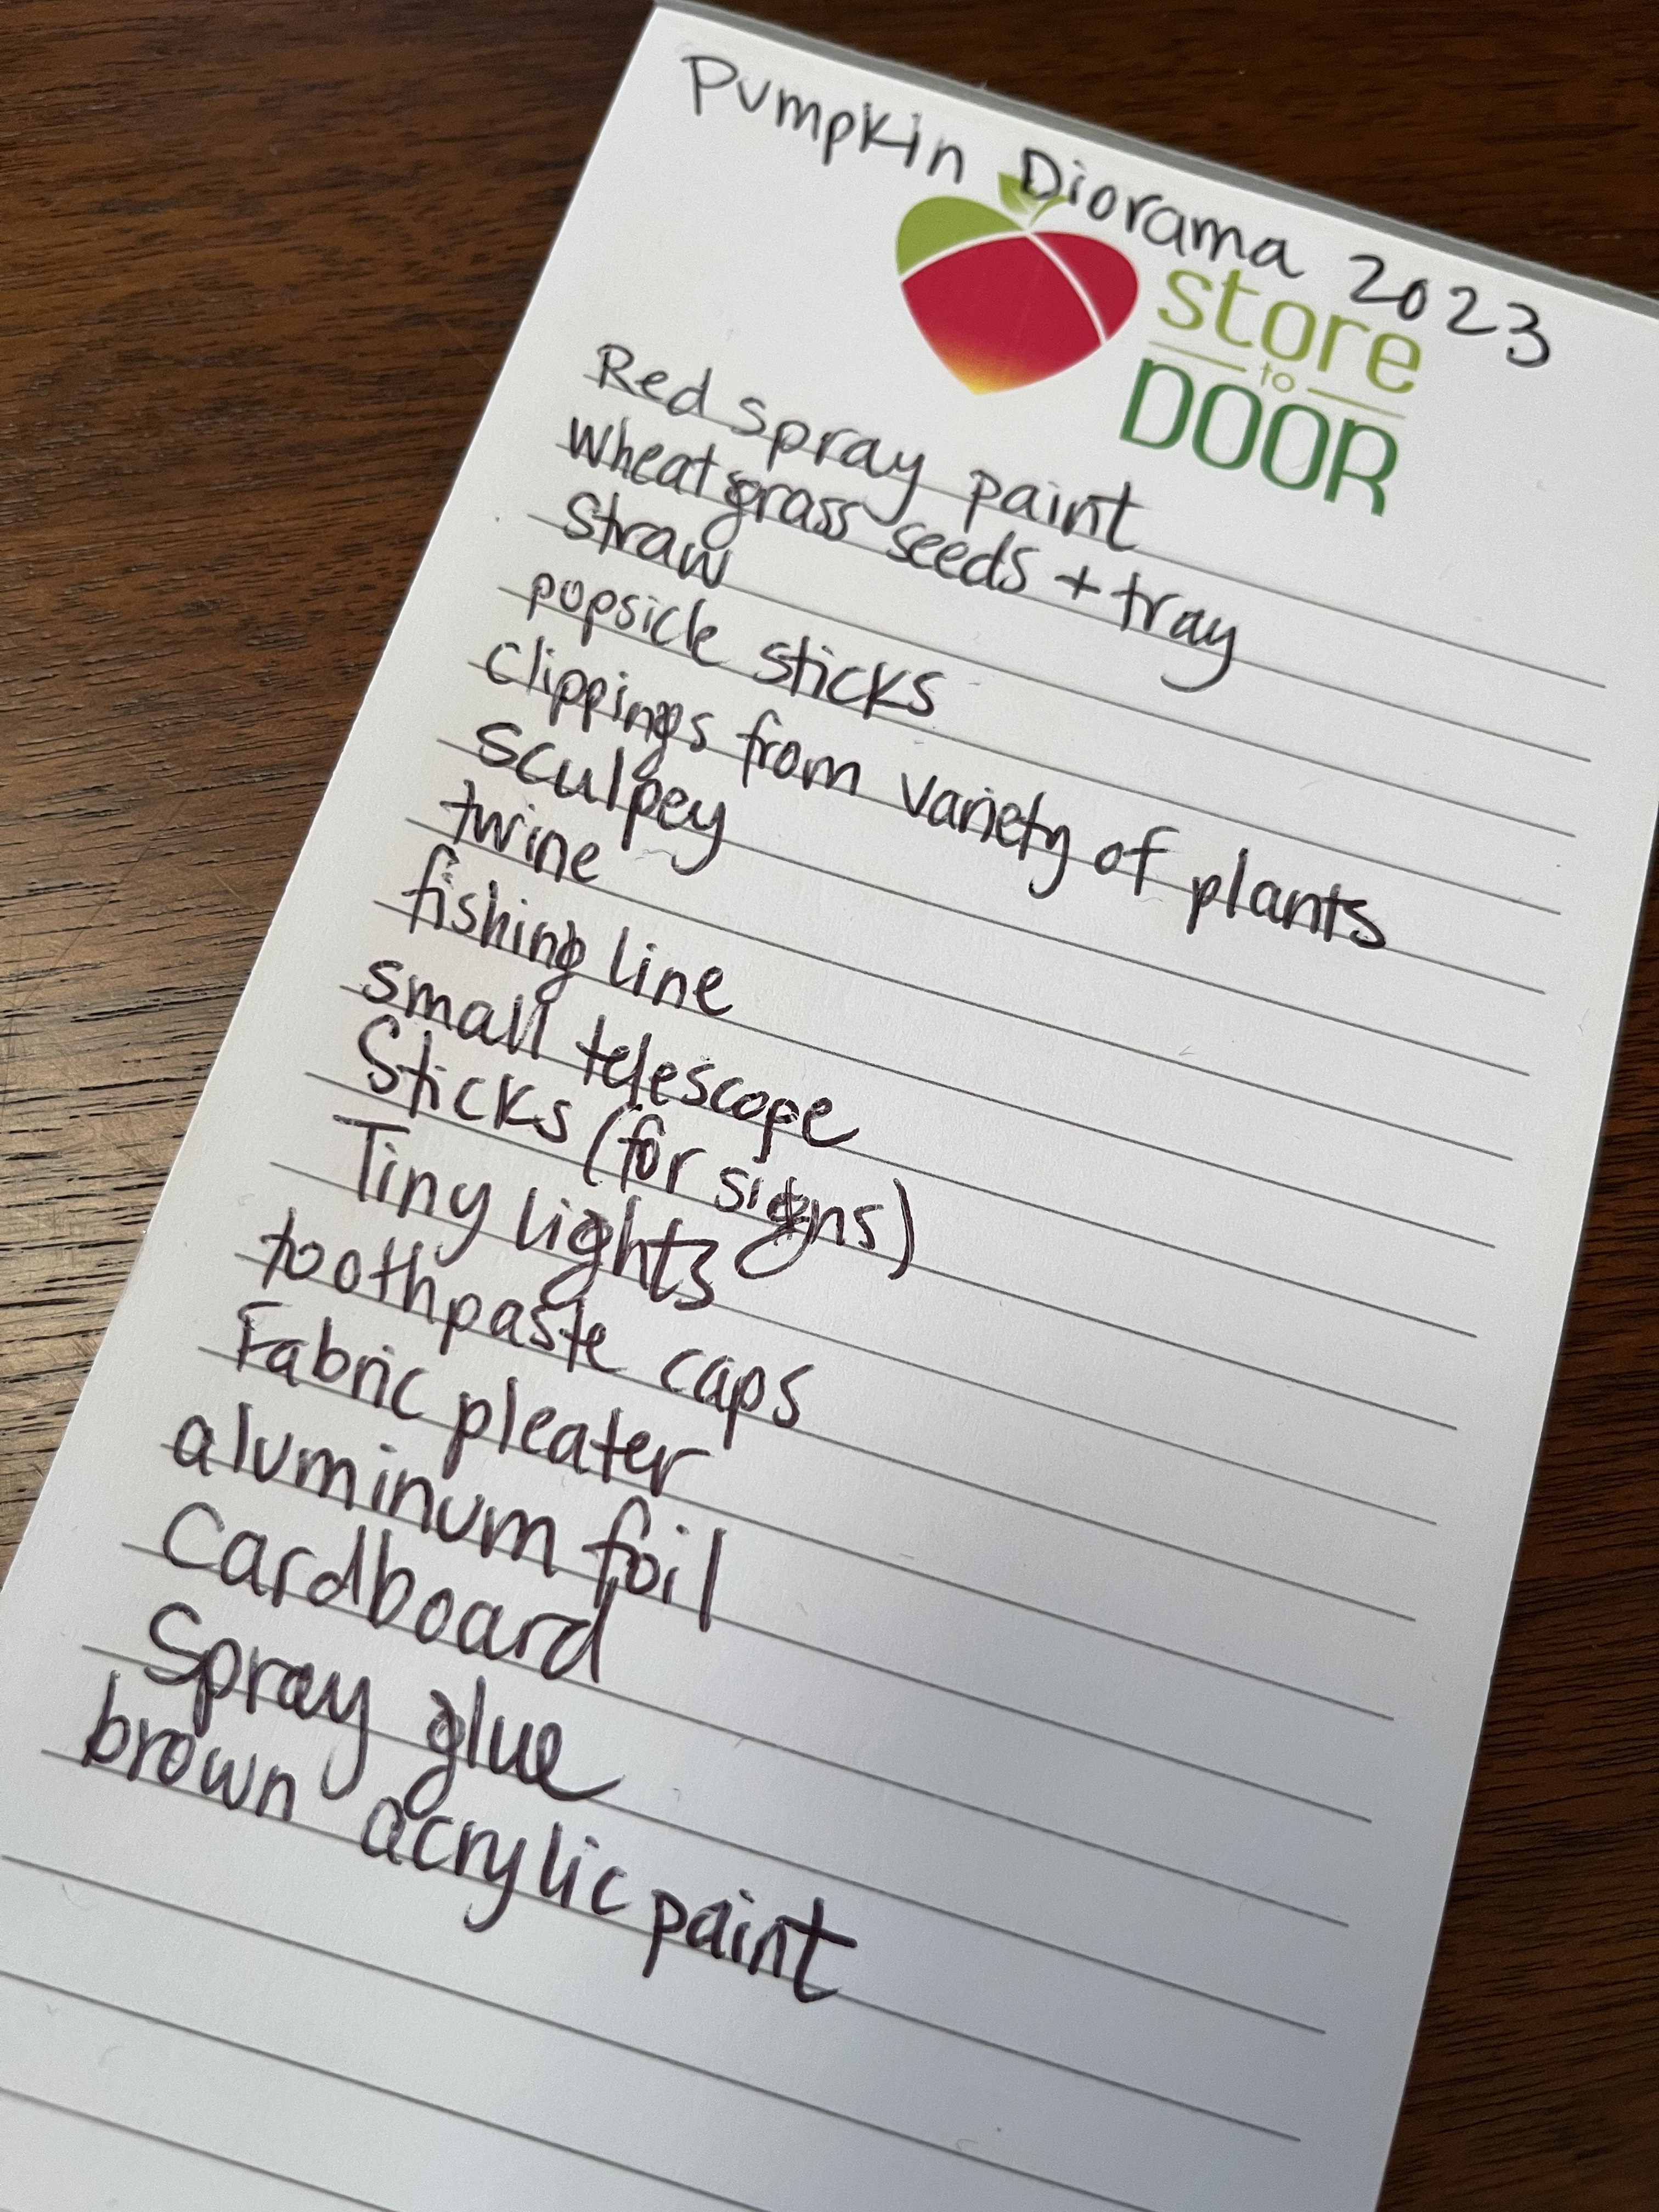 Pumpkin Diorama 2023
store
to
DOOR
Red spray paint
wheat grass seeds + tray
Straw
popsicle sticks
clippings from variety of plants
sculpey
twine
fishing line
small telescope
Sticks (for signs)
Tiny lights
toothpaste caps
Fabric pleater
aluminum foil
Cardboard
Spray glue
brown acrylic paint